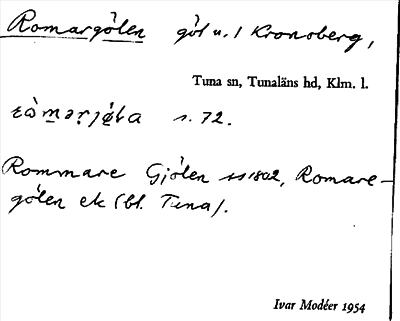 Romargölen göl u. l Kronoberg,
Tuna sn, Tunaläns hd, Klm. l.
s. 72.
Rommare Gjölen 1802, Romare-
gölen ek (bl. Tuna).
Ivar Modéer 1954